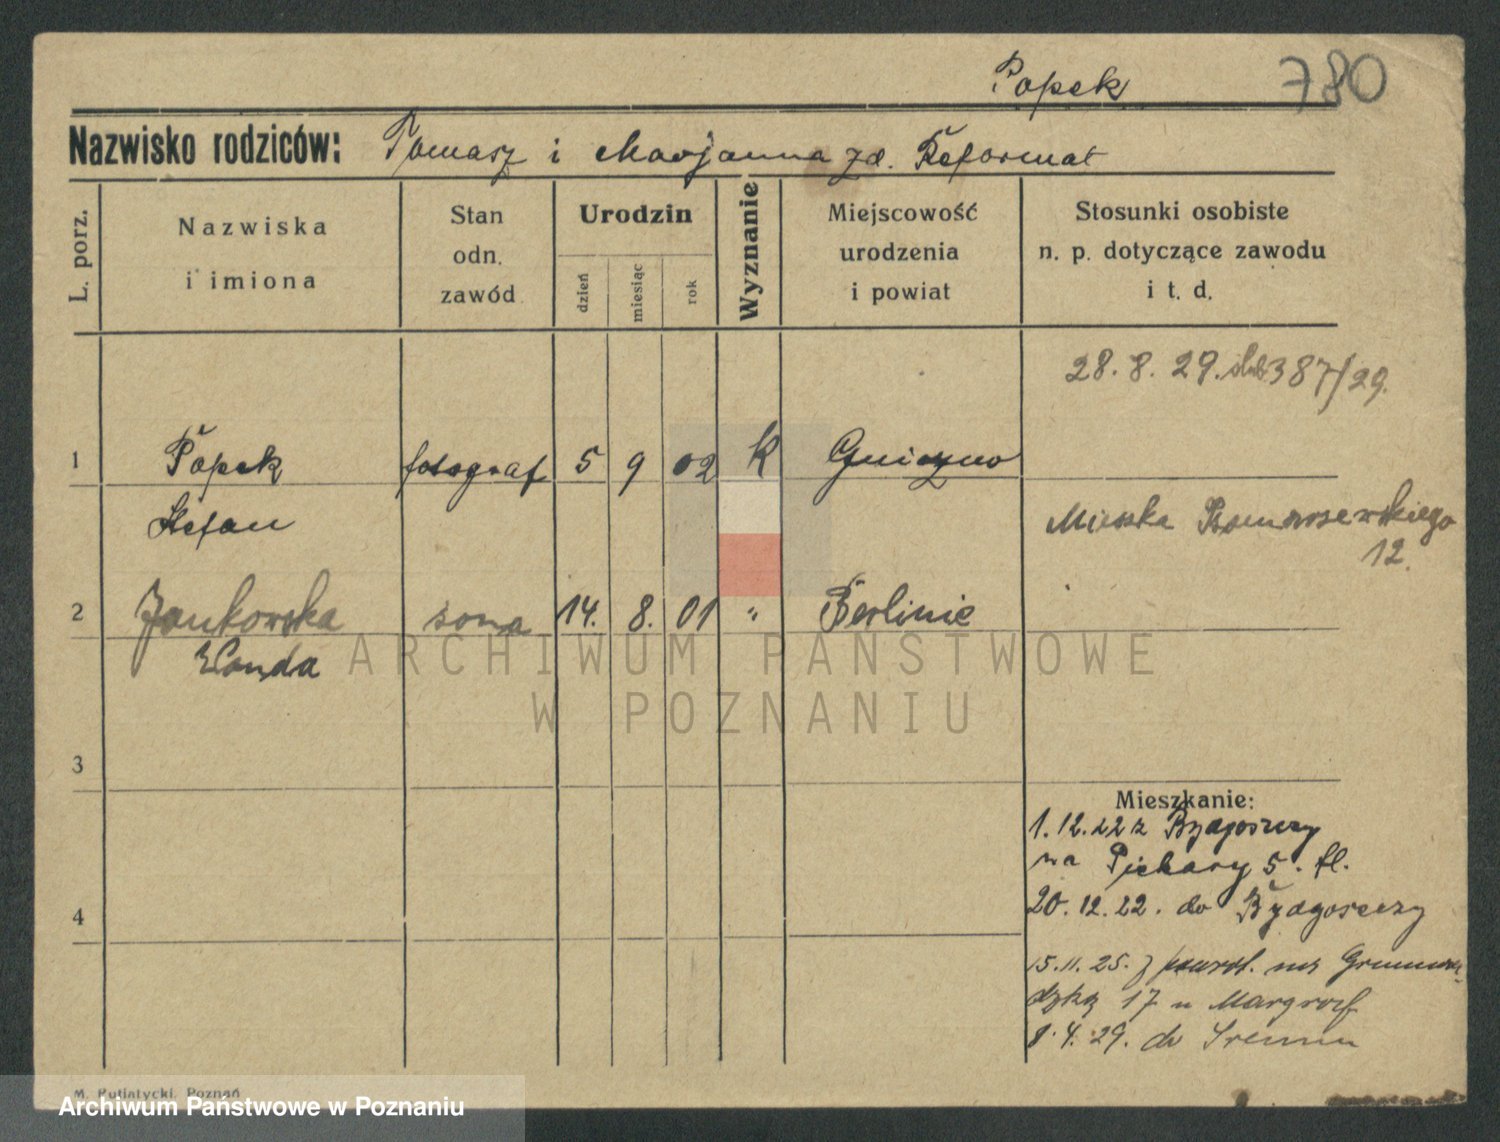 Popek 780
Nazwisko rodziców: Tomasz i Marjanna zd. Reformat
L. porz.
Nazwiska
i imiona
Stan
odn.
zawód
Urodzin
dzień
miesiąc
rok
Wyznanie
Miejscowość
urodzenia
i powiat
Stosunki osobiste
n. p. dotyczące zawodu
i t. d.
28. 8. 29. 387/29.
1 Popek fotograf 5 9 02 k Gniezno
Stefan
Mieszka
12.
2 Jankowska żona 14. 8. 01 " Berlinie
Wanda
ARCHIWUM PAŃSTWOWE
W POZNANIU
3
Mieszkanie:
1.12.22 z Bydgoszczy
na Piekary 5. fl.
4
20.12.22. do Bydgoszczy
15.11.25. z powrot. na Grunwal-
dzką 17 u Margrorf
8.4.29. do Śremu
M. Putiatycki, Poznań
Archiwum Państwowe w Poznaniu